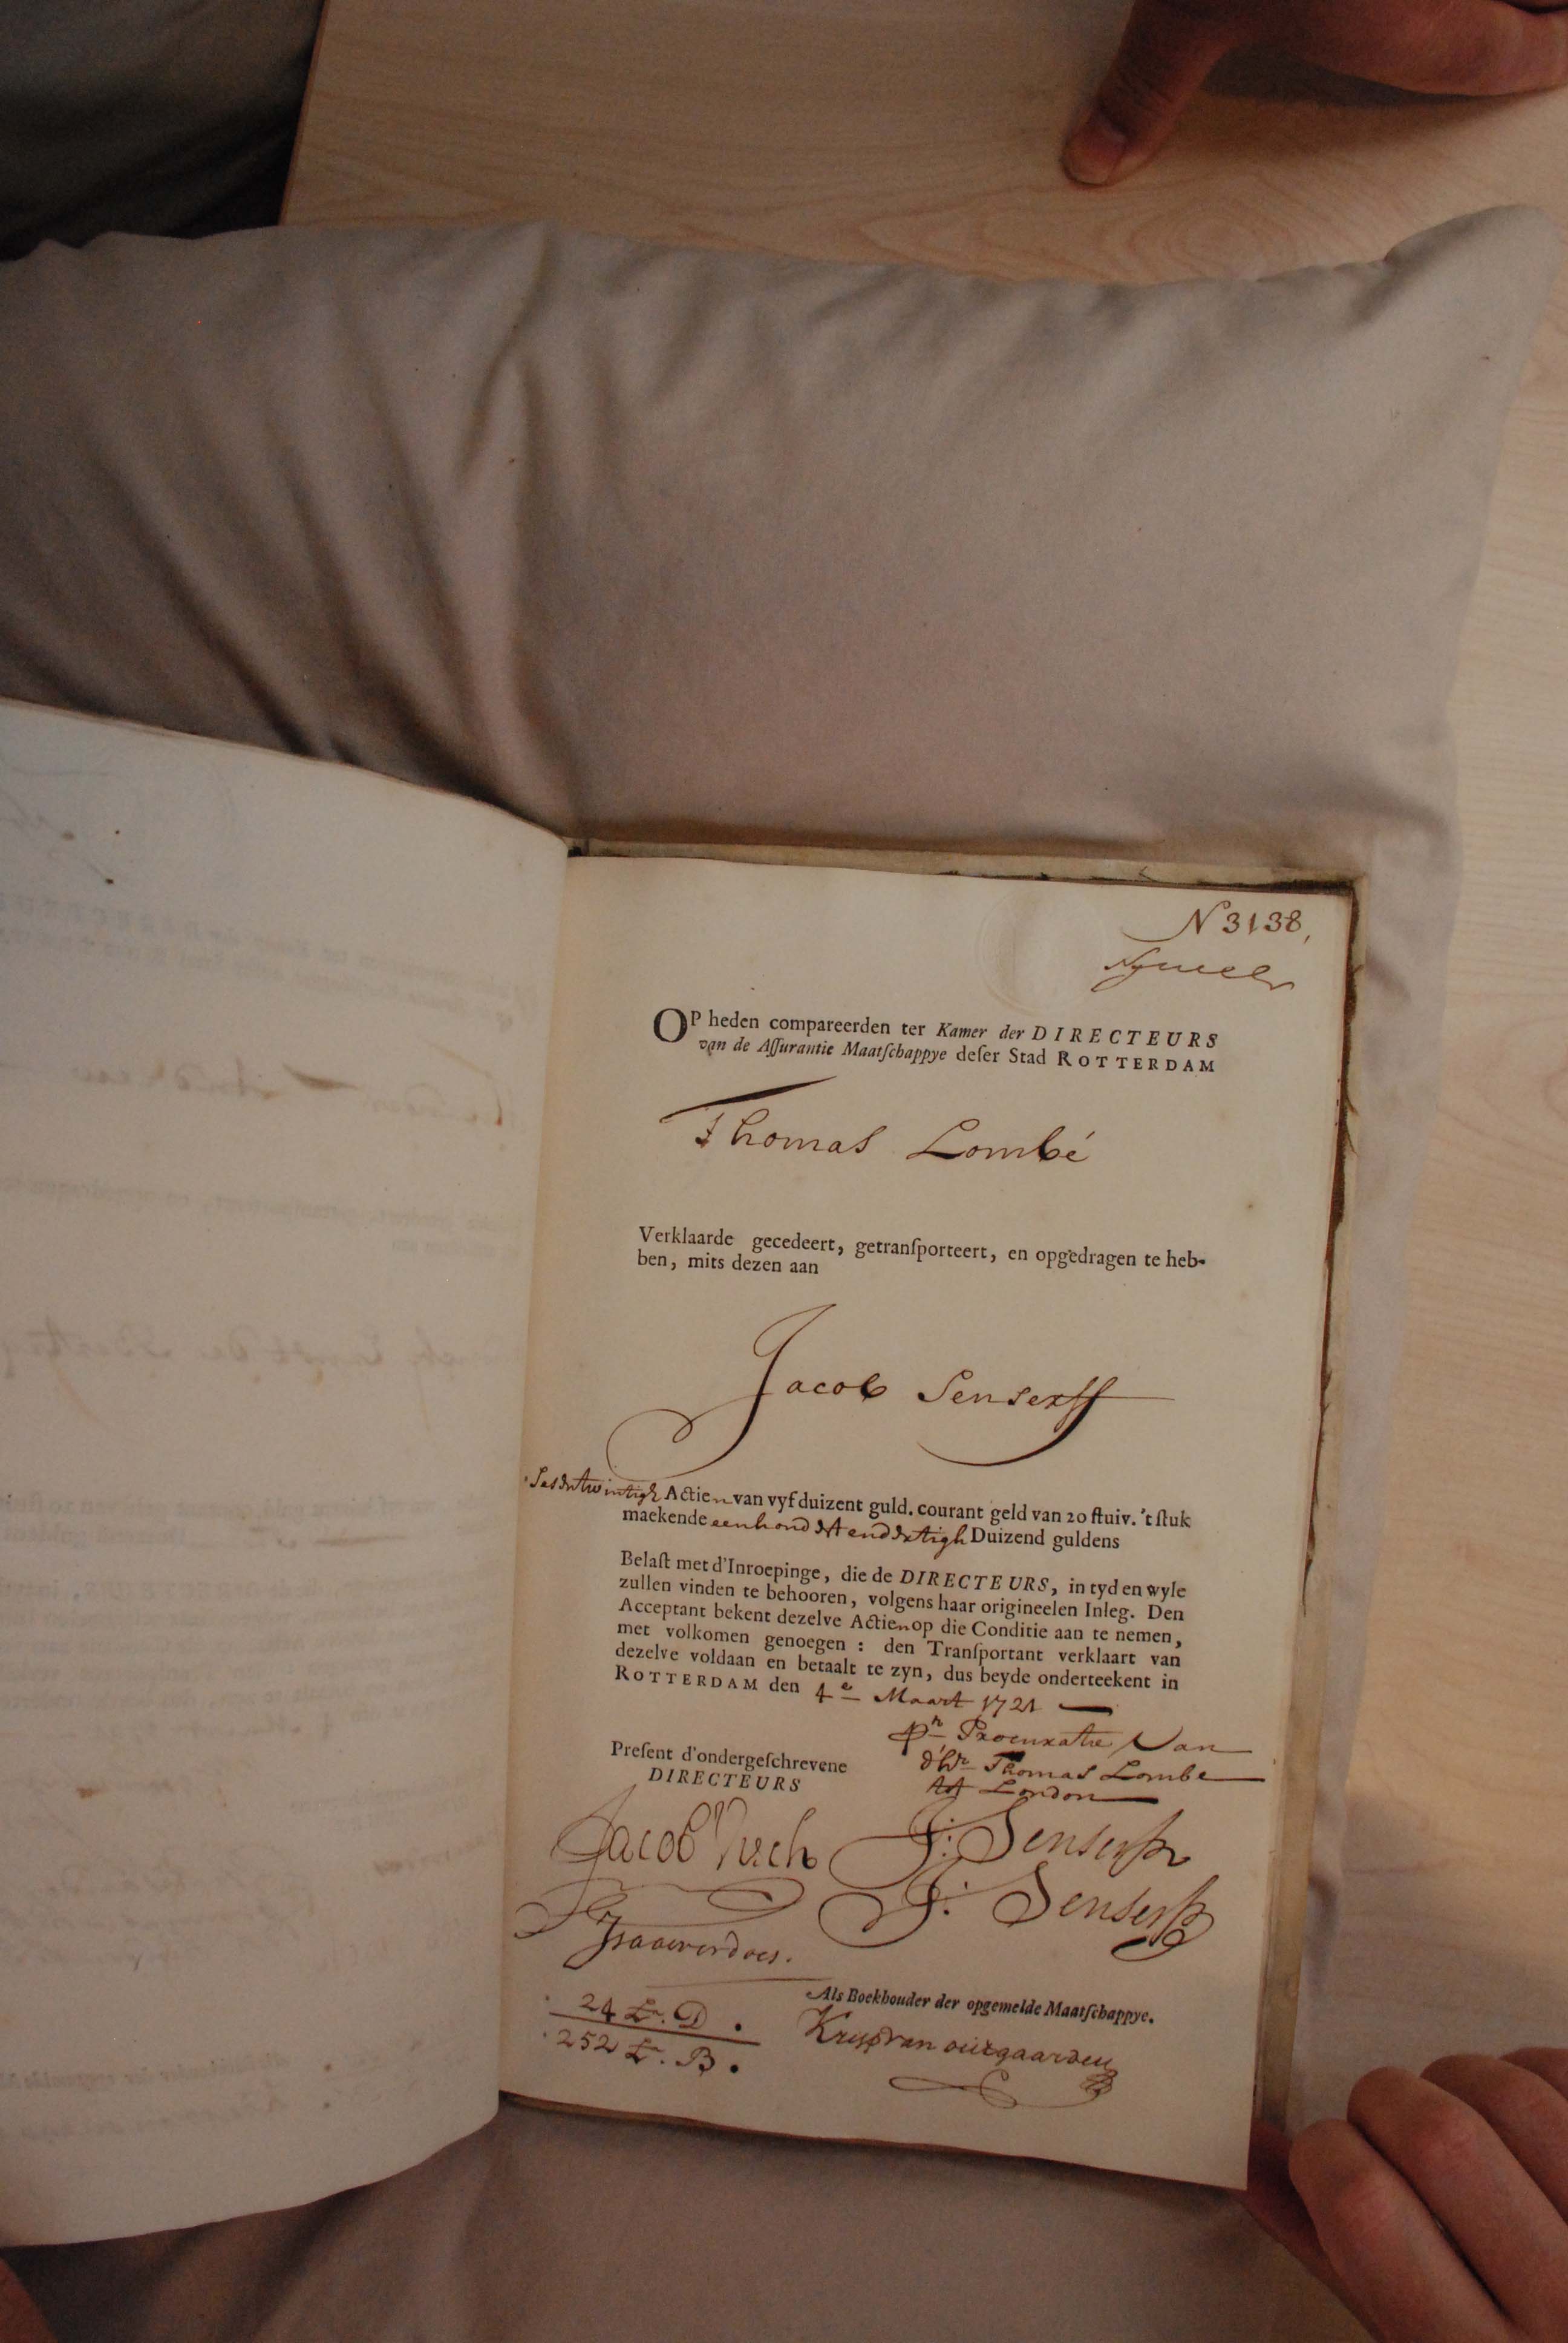 N 3138,
OP heden compareerden ter Kamer der DIRECTEURS
van de Aſſurantie Maatſchappye deſer Stad ROTTERDAM
Thomas Lombé
Verklaarde gecedeert, getranſporteert, en opgedragen te heb-
ben, mits dezen aan
Jacob Senserff
Sesentwintigh Actien van vyf duizent guld. courant geld van 20 ſtuiv. 't ſtuk
maekende eenhondert endertigh Duizend guldens
Belaſt met d'Inroepinge, die de DIRECTEURS, in tyd en wyle
zullen vinden te behooren, volgens haar origineelen Inleg. Den
Acceptant bekent dezelve Actien op die Conditie aan te nemen,
met volkomen genoegen : den Tranſportant verklaart van
dezelve voldaan en betaalt te zyn, dus beyde onderteekent in
ROTTERDAM den 4e Maart 1721
pr Procuratie Van
d'Hr Thomas Lombe
tot London
Preſent d'ondergeſchrevene
DIRECTEURS
Jacob J: Senserff
J: Senserff
Als Boekhouder der opgemelde Maatſchappye.
24 Lr. D.
252 Lr. B.